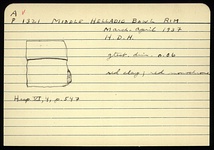 A
P 1321 MIDDLE HELLADIC BOWL RIM
March-April 1937
H.D.H.
p. 86
red clay; red
Hesp VI, 4, p. 547